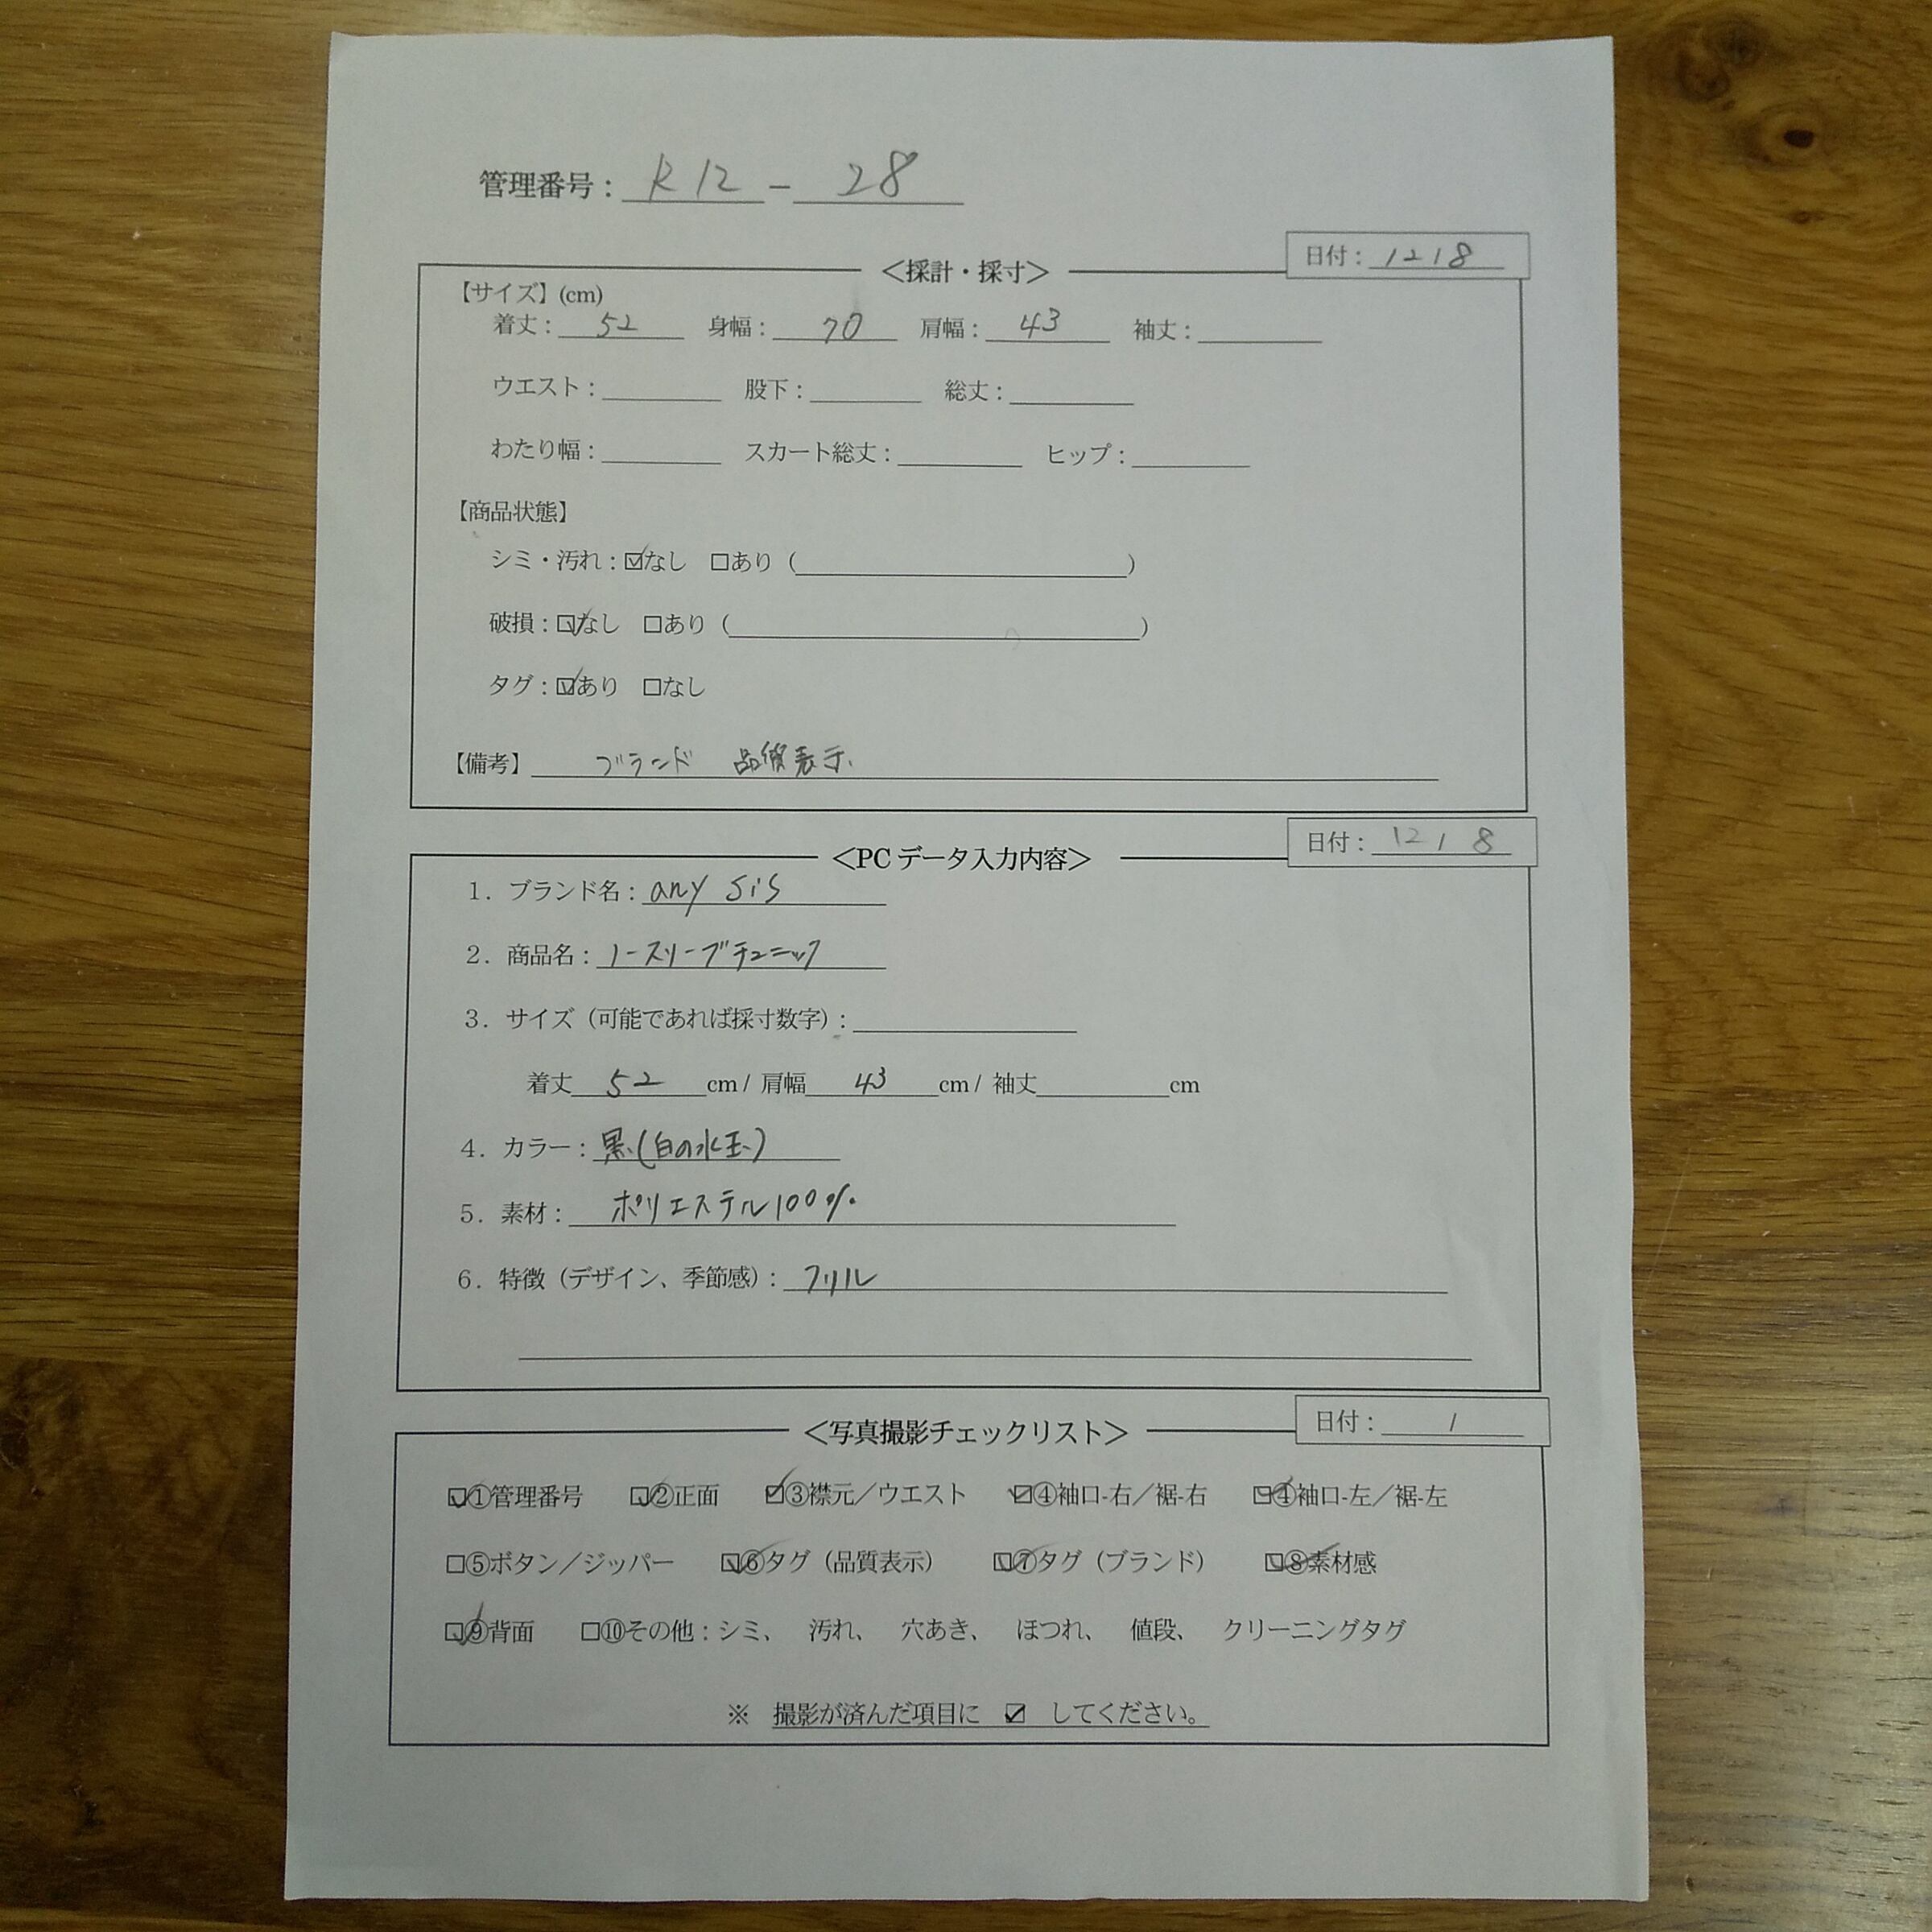 管理番号：K12－28
＜採計・採寸＞ 日付：12/8
【サイズ】(cm)
着丈：52 身幅：70 肩幅：43 袖丈：
ウエスト： 股下： 総丈：
わたり幅： スカート総丈： ヒップ：
【商品状態】
シミ・汚れ：☑なし □あり（ ）
破損：☑なし □あり（ ）
タグ：☑あり □なし
【備考】 ブランド 品質表示
＜PCデータ入力内容＞ 日付：12/8
1．ブランド名：any sis
2．商品名：ノースリーブチュニック
3．サイズ（可能であれば採寸数字）：
着丈 52 cm / 肩幅 43 cm / 袖丈 cm
4．カラー：黒(白の水玉)
5．素材：ポリエステル100%
6．特徴（デザイン、季節感）：フリル
＜写真撮影チェックリスト＞ 日付： /
☑①管理番号 ☑②正面 ☑③襟元／ウエスト ☑④袖口-右／裾-右 ☑④袖口-左／裾-左
□⑤ボタン／ジッパー ☑⑥タグ（品質表示） ☑⑦タグ（ブランド） ☑⑧素材感
☑⑨背面 □⑩その他：シミ、 汚れ、 穴あき、 ほつれ、 値段、 クリーニングタグ
※ 撮影が済んだ項目に ☑ してください。